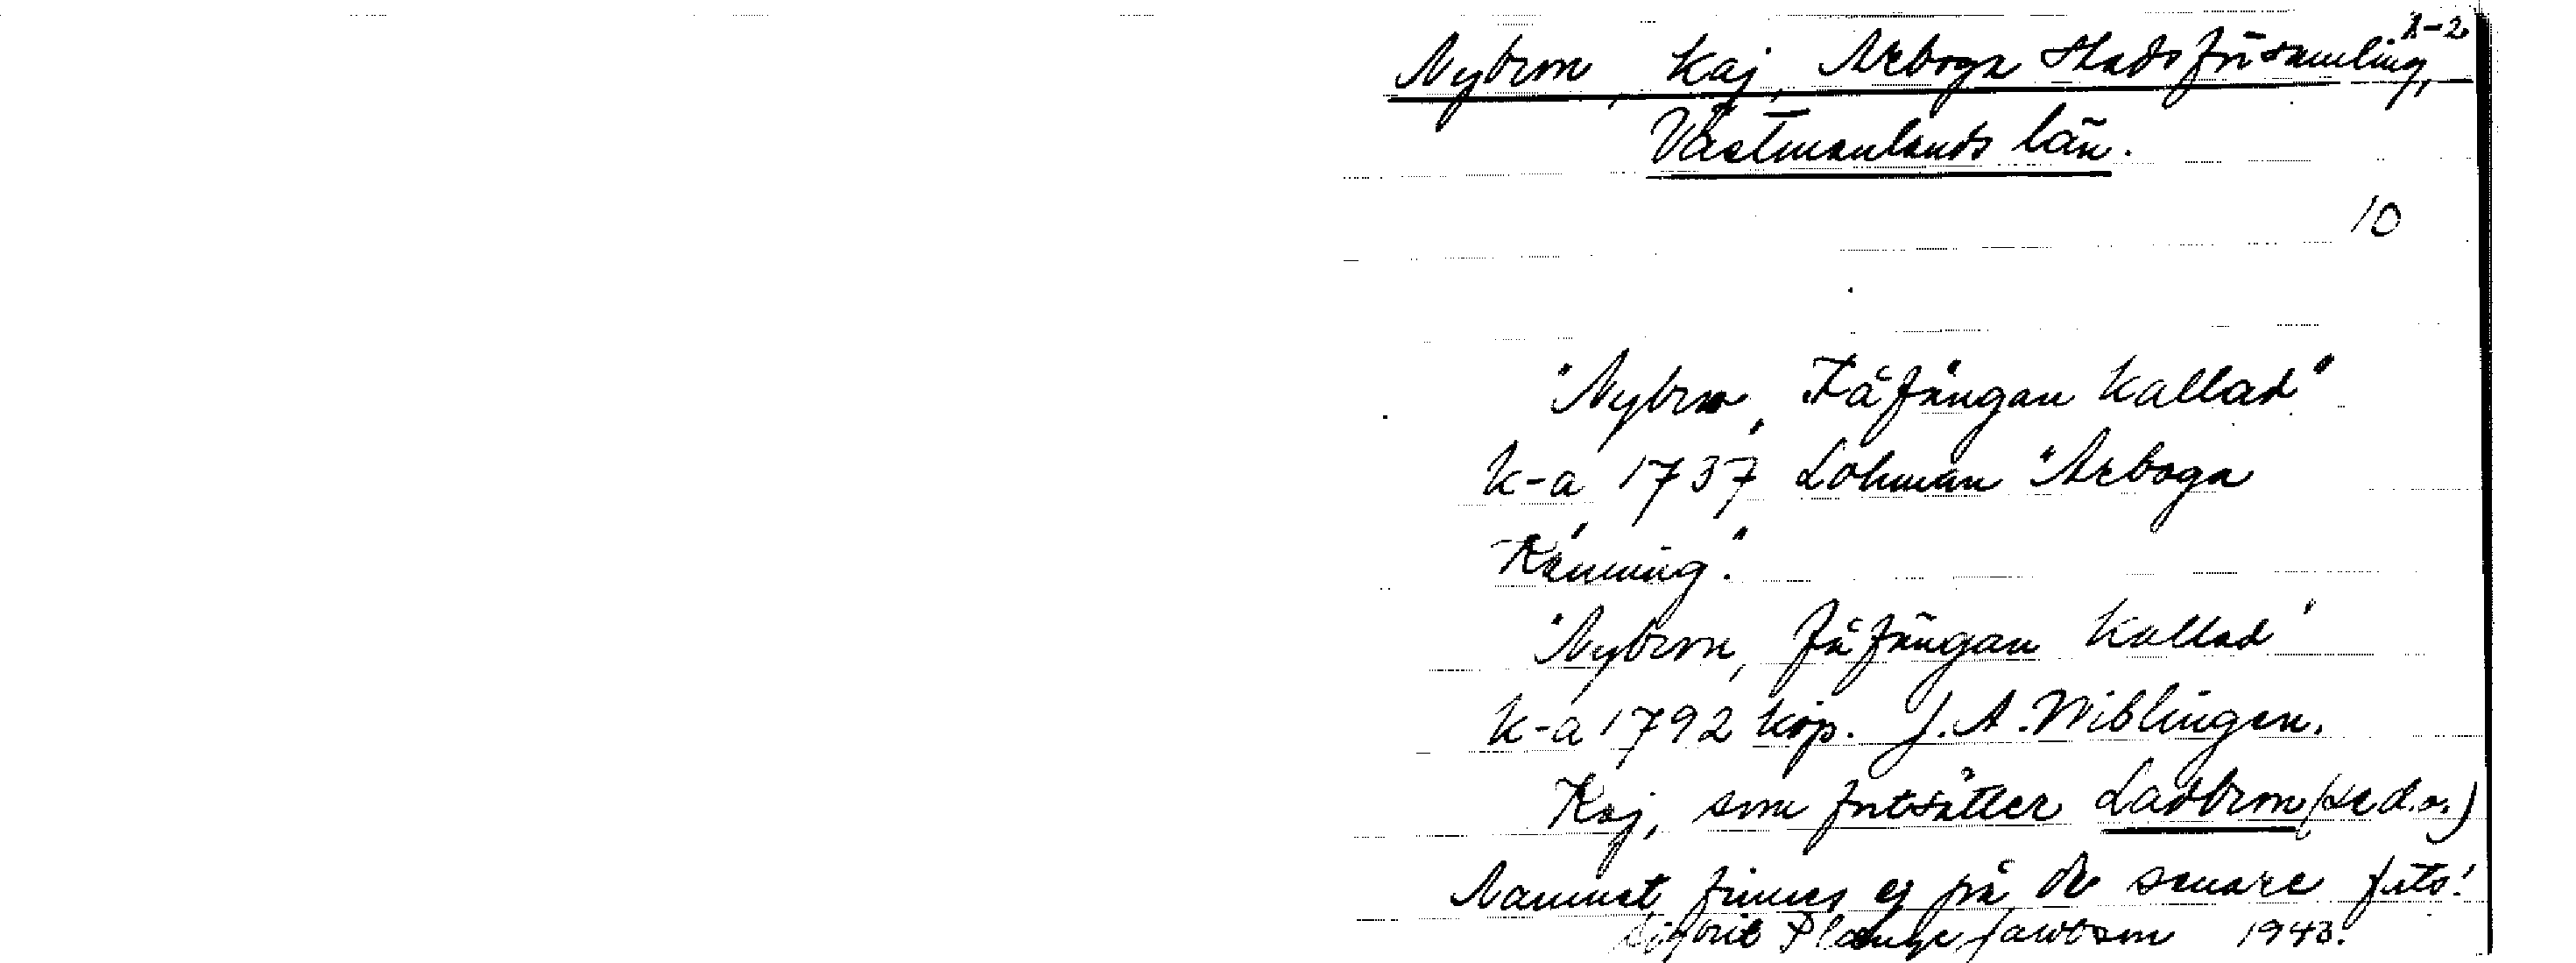 Nybron, Kaj, Arboga Stadsförsamling, 1-2
Västmanlands län.
10
"Nybron, Fåfängan kallad"
k-a 1737 Lohman "Arboga
Känning".
"Nybron, Fåfängan kallad"
k-a 1792 kop. J.A. Wiblingen.
Kaj, som fortsätter Ladbron (se d.o.)
Namnet finnes ej på de senare
Jacobson 1943.